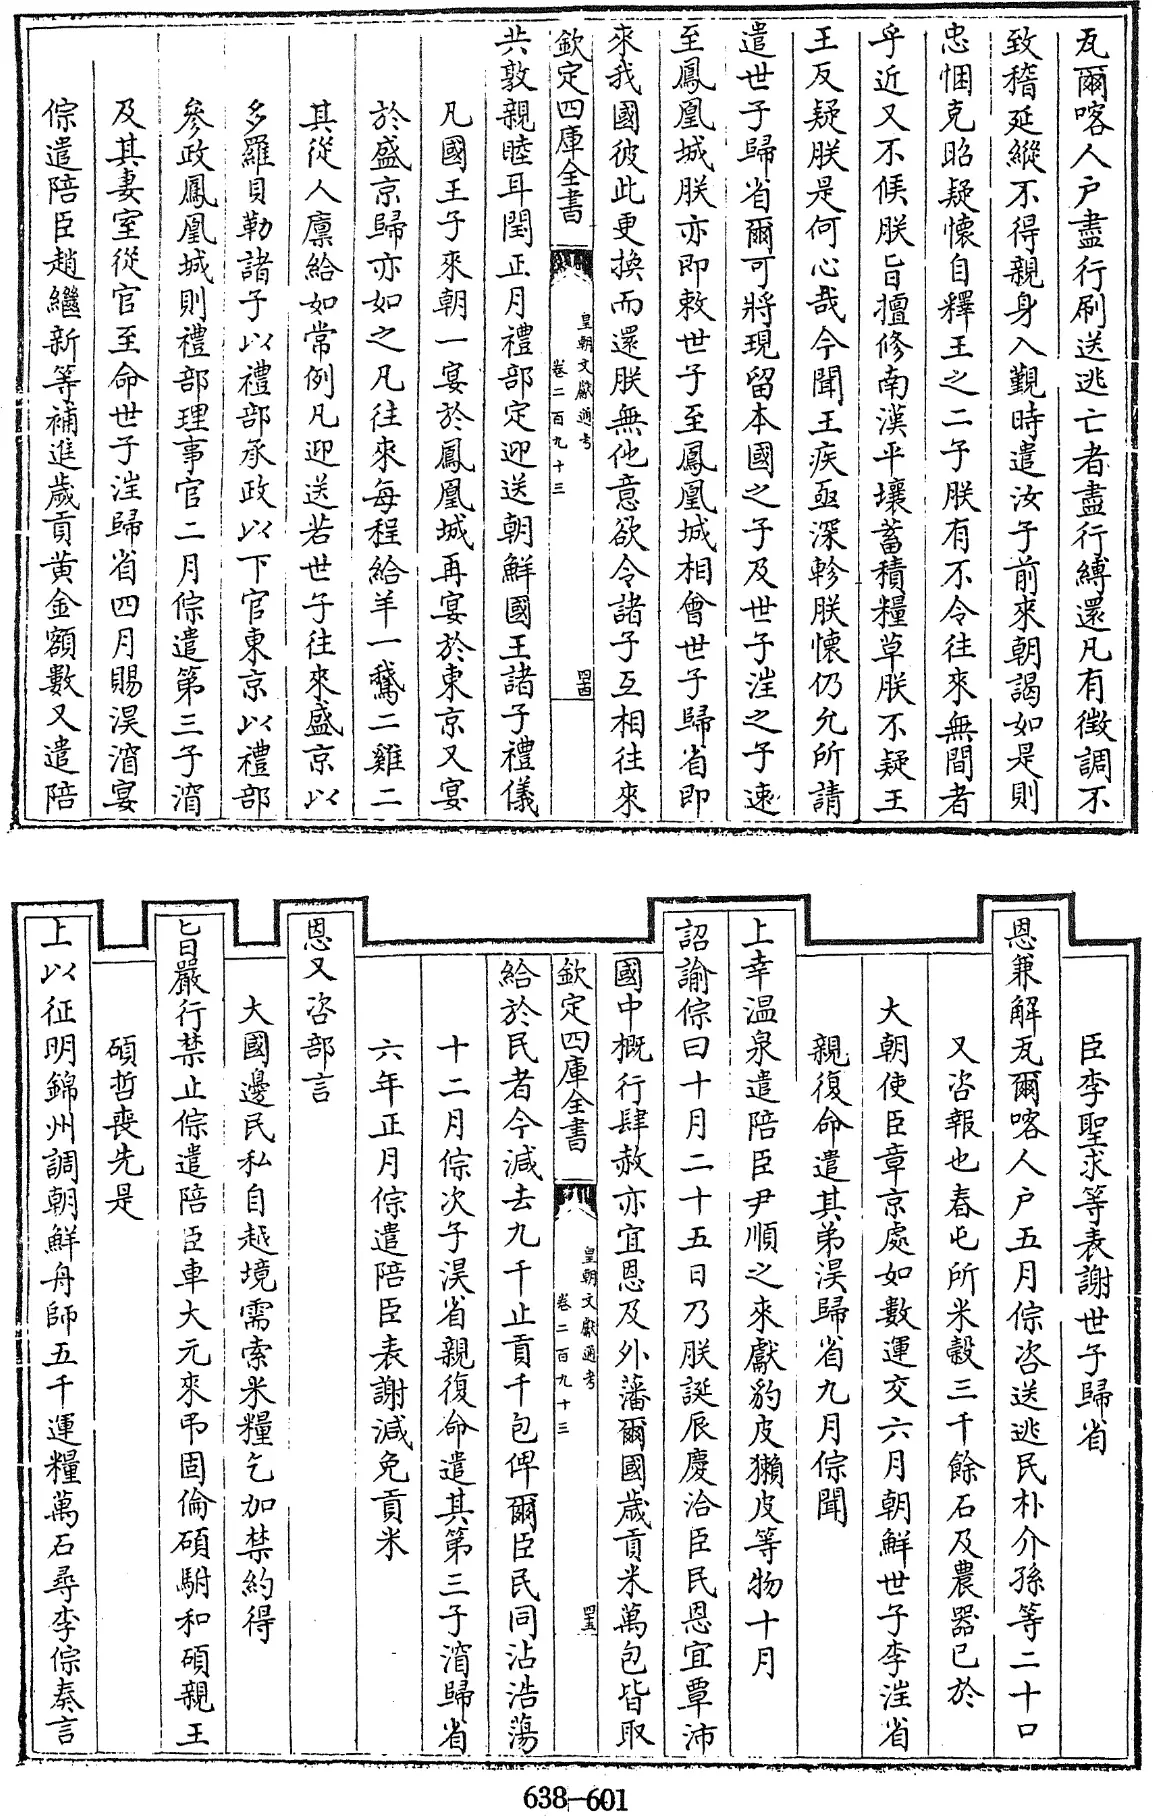 瓦爾喀人户盡行刷送逃亡者盡行縛還凡有徵調不
致稽延縱不得親身入覲時遣汝子前來朝謁如是則
忠悃克昭疑懐自釋王之二子朕有不令往來無間者
乎近又不候朕旨擅修南漢平壤蓄積糧草朕不疑王
王反疑朕是何心哉今聞王疾亟深軫朕懐仍允所請
遣世子歸省爾可將現留本國之子及世子㴲之子速
至鳳凰城朕亦即敕世子至鳳凰城相會世子歸省即
來我國彼此更換而還朕無他意欲令諸子互相往來
欽定四庫全書
皇朝文獻通考
卷二百九十三
四十四
共敦親睦耳閏正月禮部定迎送朝鮮國王諸子禮儀
凡國王子來朝一宴於鳳凰城再宴於東京又宴
於盛京歸亦如之凡往來每程給羊一鵝二雞二
其從人廪給如常例凡迎送若世子往來盛京以
多羅貝勒諸子以禮部承政以下官東京以禮部
參政鳳凰城則禮部理事官二月倧遣第三子㴭
及其妻室從官至命世子㴲歸省四月賜淏㴭宴
倧遣陪臣趙繼新等補進歲貢黄金額數又遣陪
臣李聖求等表謝世子歸省
恩兼解瓦爾喀人户五月倧咨送逃民朴介孫等二十口
又咨報也春屯所米穀三千餘石及農器已於
大朝使臣章京處如數運交六月朝鮮世子李㴲省
親復命遣其弟淏歸省九月倧聞
上幸温泉遣陪臣尹順之來獻豹皮獺皮等物十月
詔諭倧曰十月二十五日乃朕誕辰慶洽臣民恩宜覃沛
國中概行肆赦亦宜恩及外藩爾國歲貢米萬包皆取
欽定四庫全書
皇朝文獻通考
卷二百九十三
四十五
給於民者今減去九千止貢千包俾爾臣民同沾浩蕩
十二月倧次子淏省親復命遣其第三子㴭歸省
六年正月倧遣陪臣表謝減免貢米
恩又咨部言
大國邊民私自越境需索米糧乞加禁約得
旨嚴行禁止倧遣陪臣車大元來弔固倫碩駙和碩親王
碩哲喪先是
上以征明錦州調朝鮮舟師五千運糧萬石尋李倧奏言
638-601